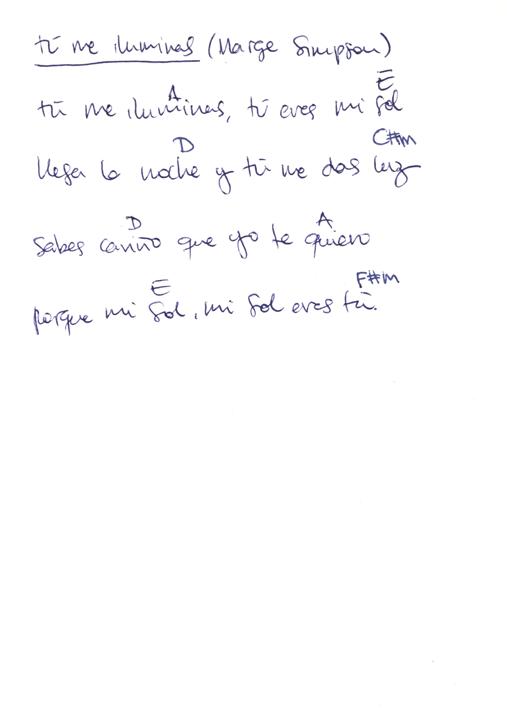 tú me iluminas (Marge Simpson)
A E
tú me iluminas, tú eres mi sol
D C#m
llega la noche y tú me das luz
D A
Sabes cariño que yo te quiero
E F#m
porque mi sol, mi sol eres tú.